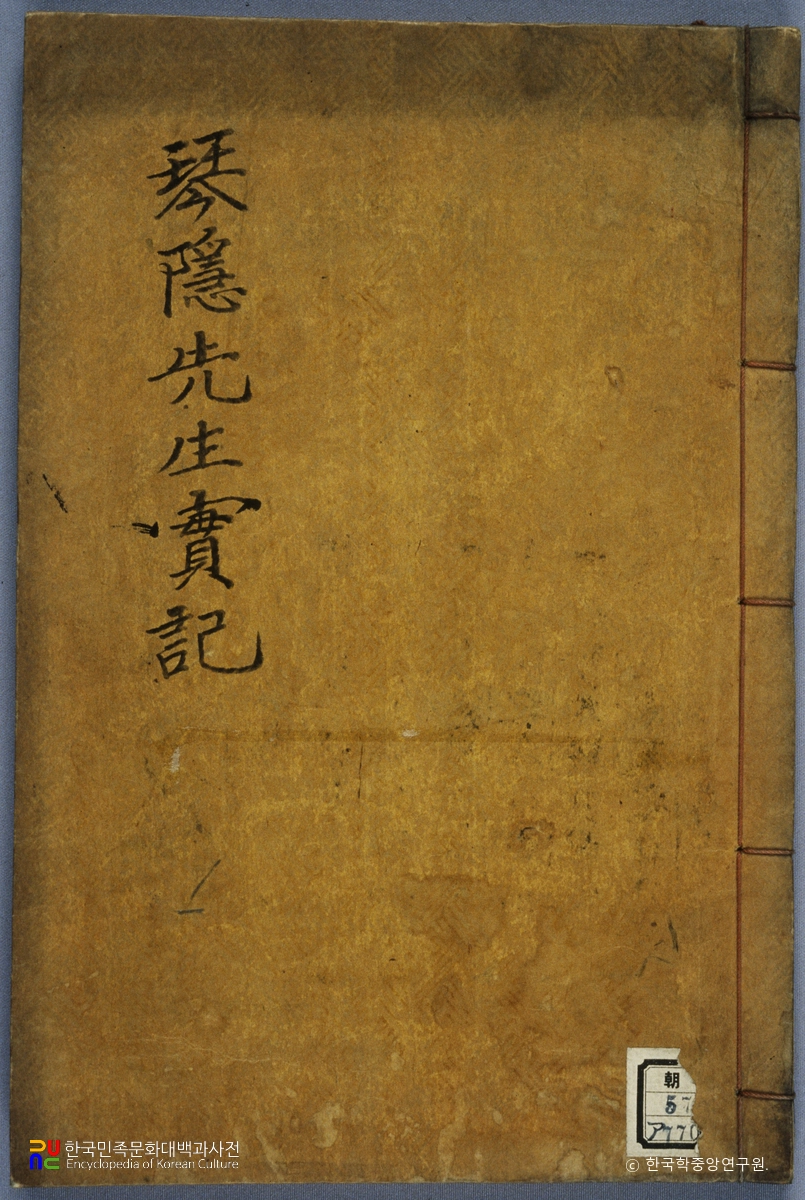 琴隱先生實記
朝
57
ア770
한국민족문화대백과사전
Encyclopedia of Korean Culture
ⓒ 한국학중앙연구원.